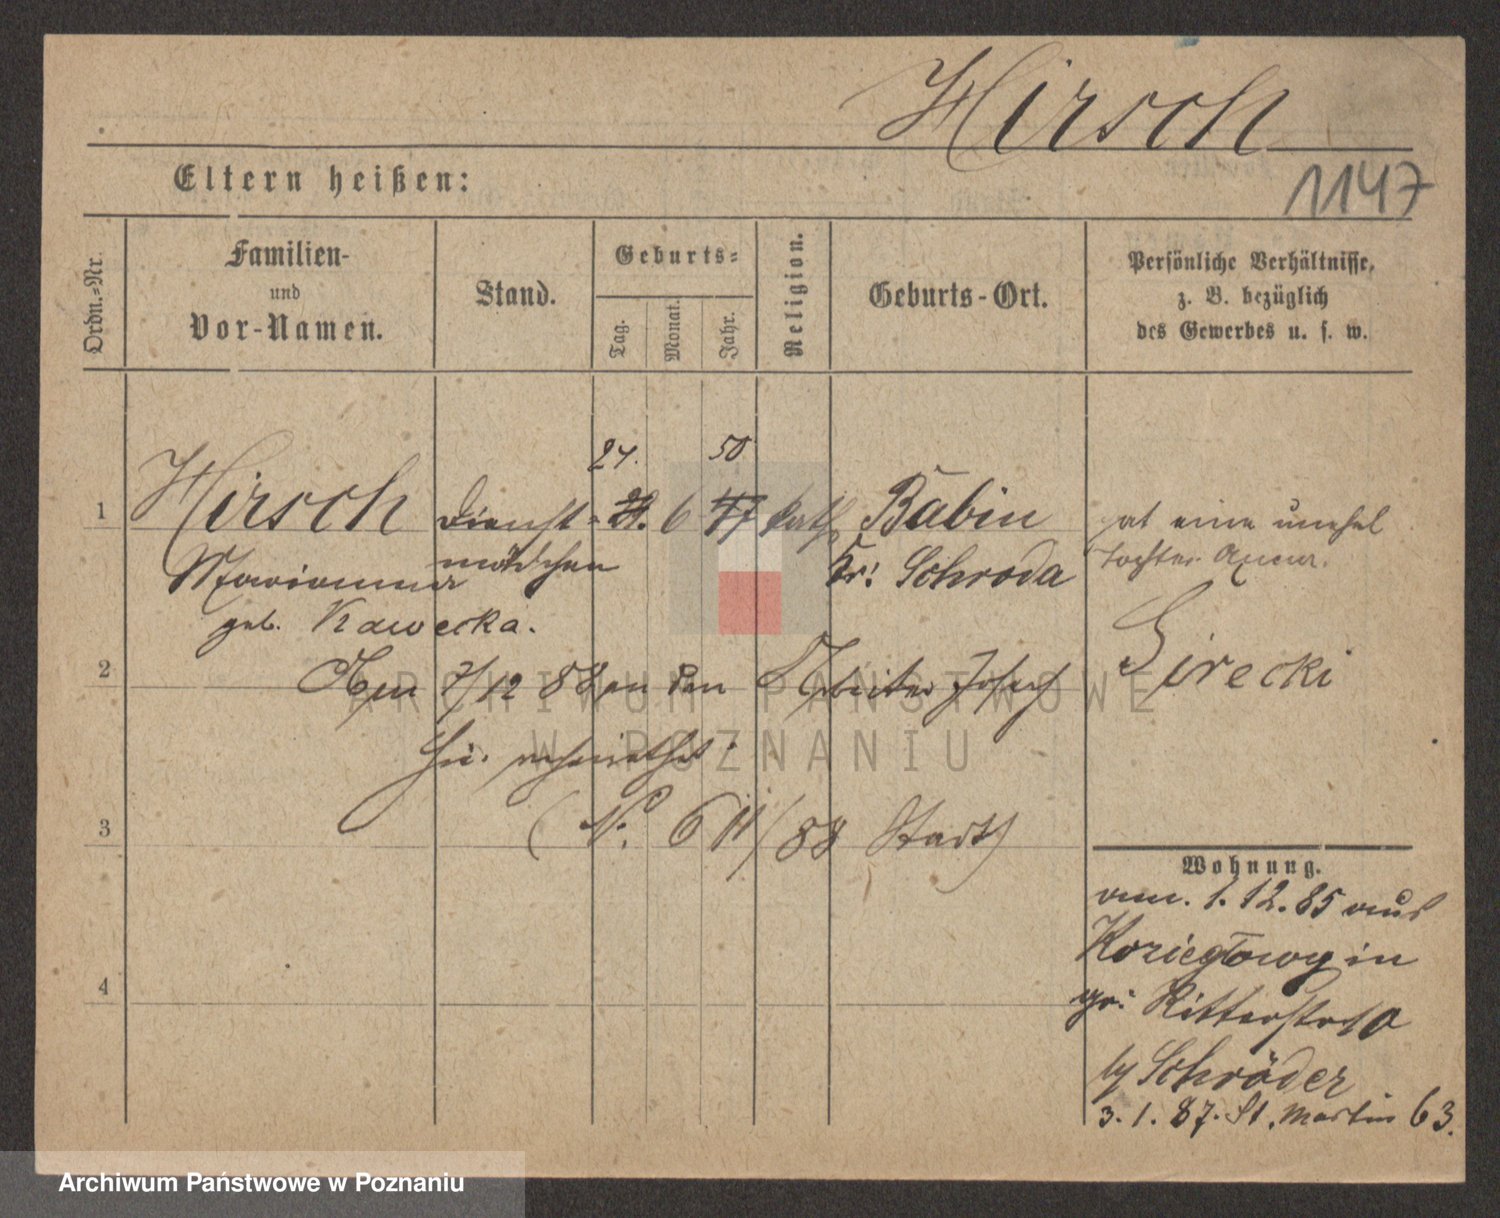 Hirsch
1147
Eltern heißen:
Ordn.-Nr.
Familien-
und
Vor-Namen.
Stand.
Geburts-
Tag.
Monat.
Jahr.
Religion.
Geburts-Ort.
Persönliche Verhältnisse,
z. B. bezüglich
des Gewerbes u. s. w.
24. 50
1 Hirsch Dienst- 21. 6 47 kath Babin
Marianna mädchen Kr: Schroda
geb. Kawecka.
hat eine unehel
Tochter Anna.
2 Am 7/12 88 an den Arbeiter Josef Sirecki
hie. verheirathet.
3 (N. 611/88 Stadt)
4
Wohnung.
am. 1.12.85 aus
Koziegłowy in
Ritterstr 10
by Schröder
3.1.87. St. Martin 63.
ARCHIWUM PAŃSTWOWE
W POZNANIU
Archiwum Państwowe w Poznaniu